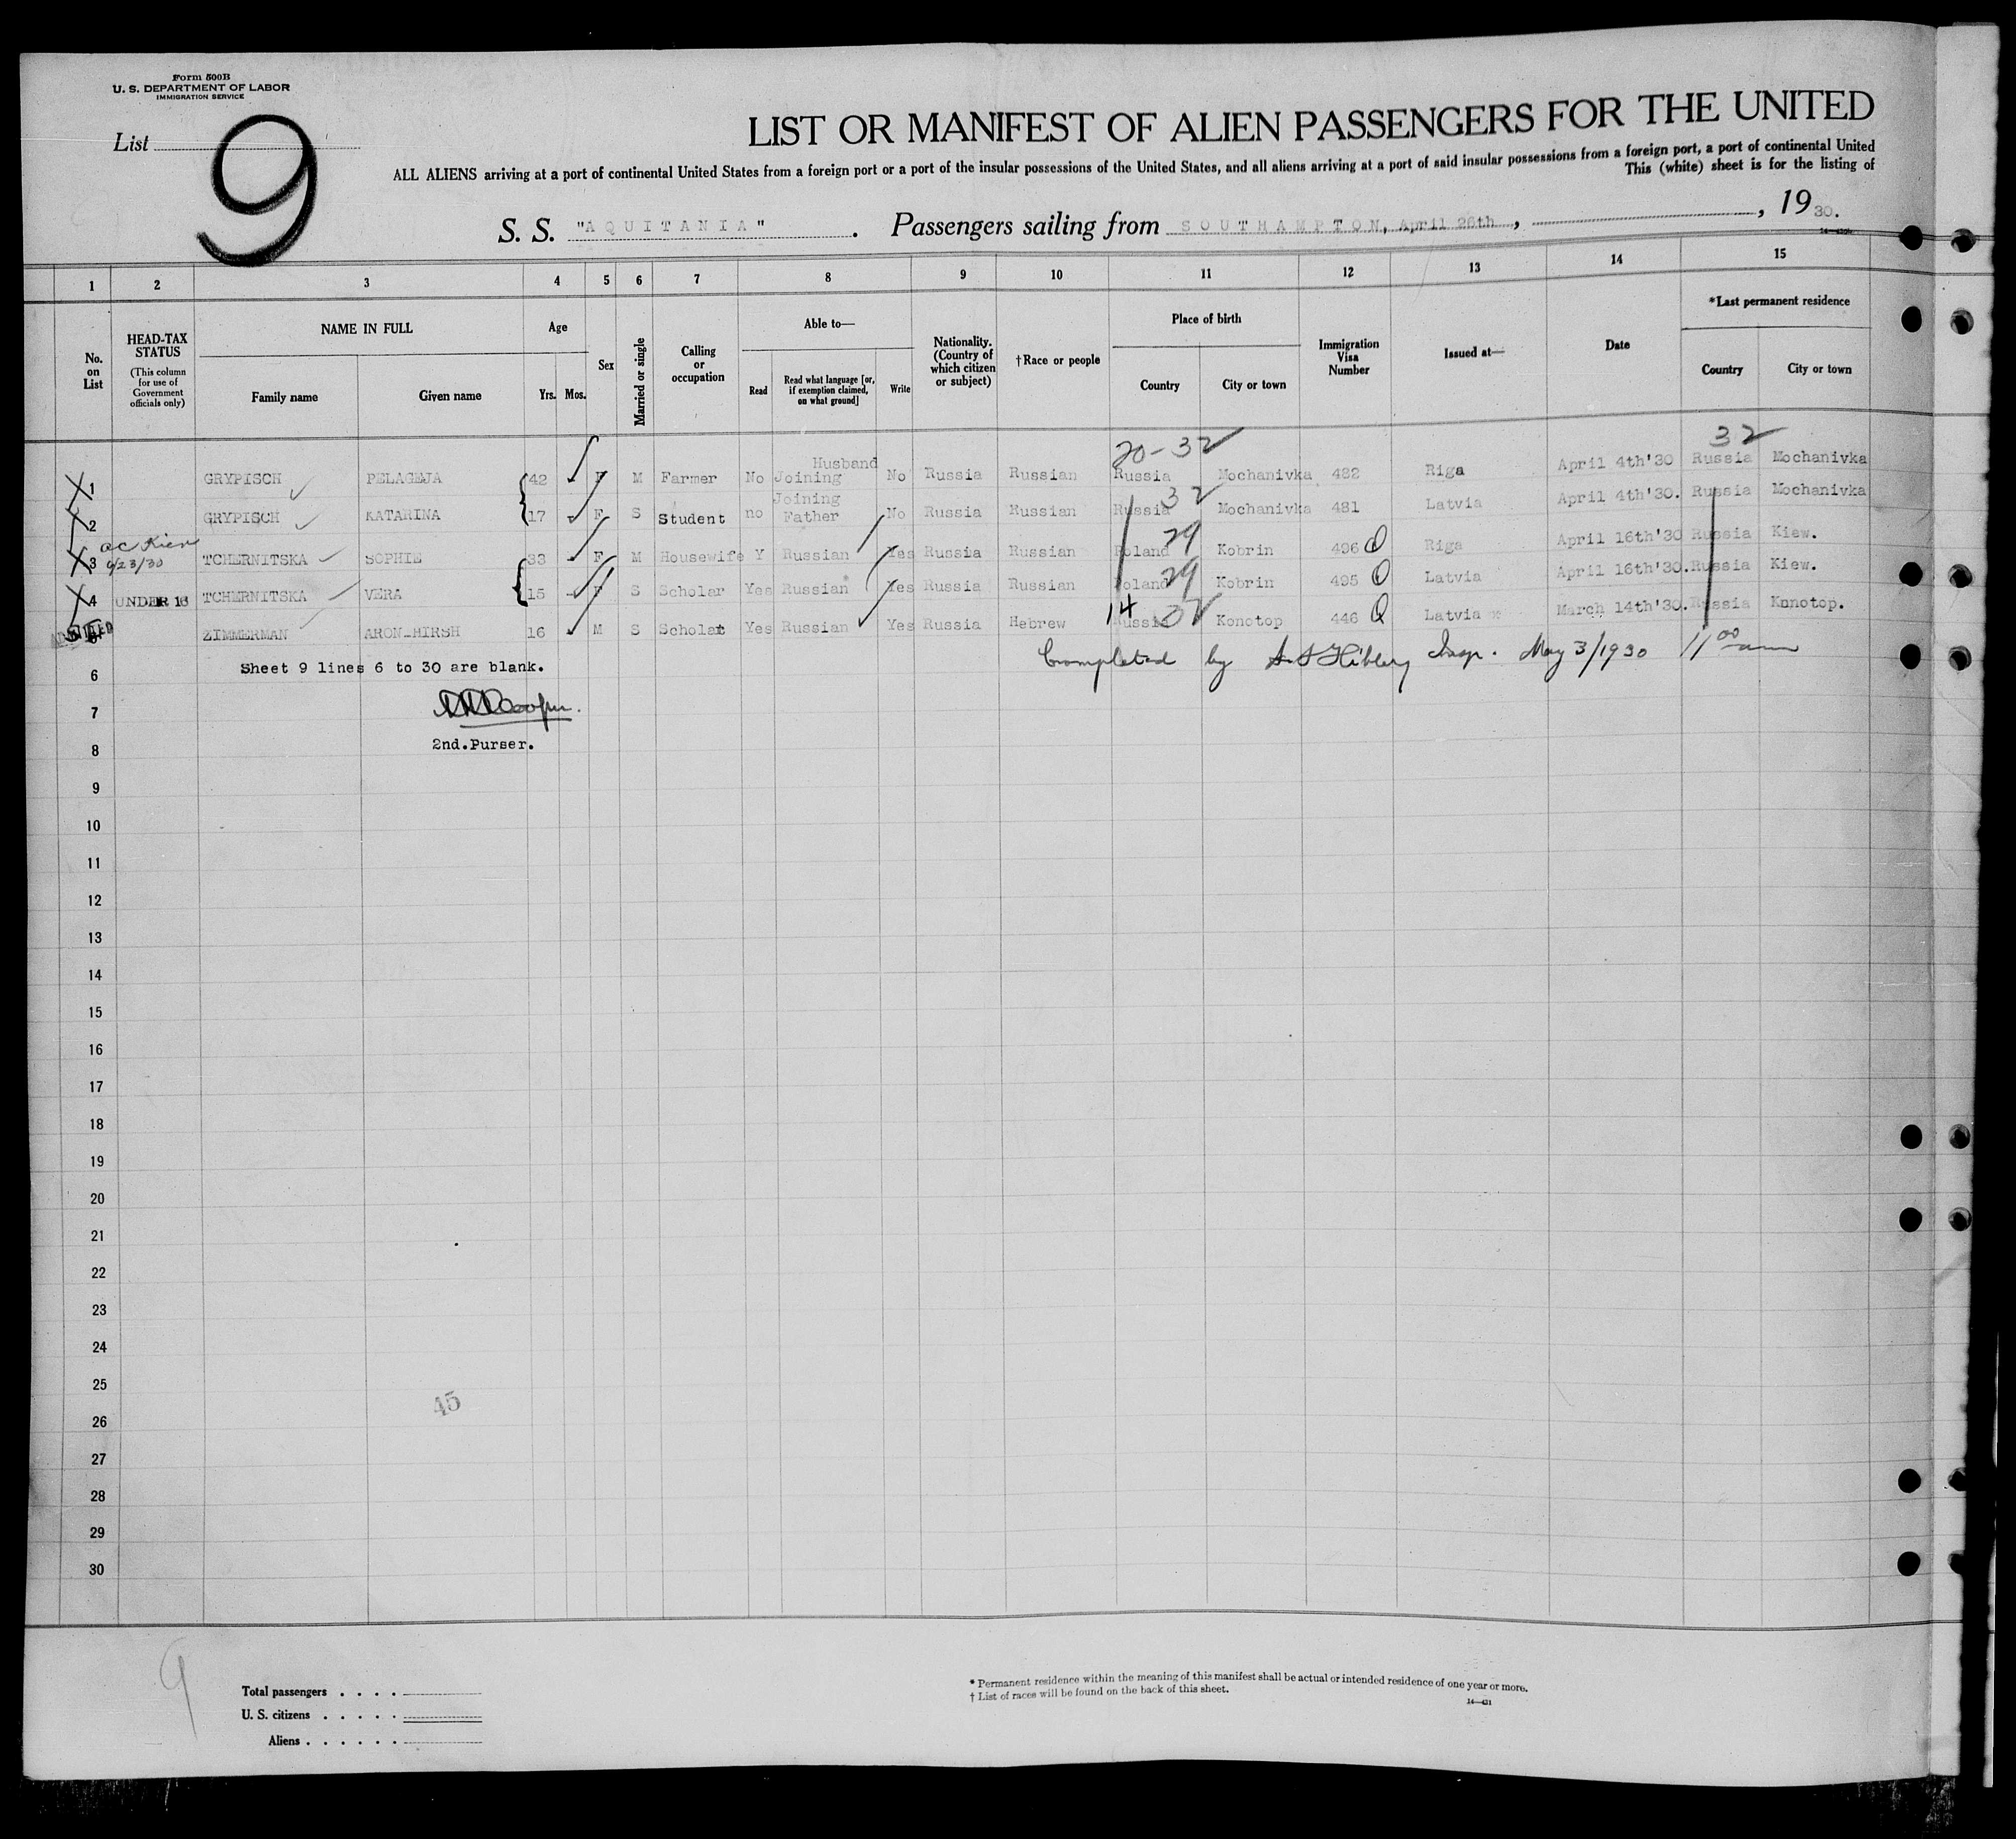 Form 500B
U. S. DEPARTMENT OF LABOR
IMMIGRATION SERVICE
List 9
LIST OR MANIFEST OF ALIEN PASSENGERS FOR THE UNITED
ALL ALIENS arriving at a port of continental United States from a foreign port or a port of the insular possessions of the United States, and all aliens arriving at a port of said insular possessions from a foreign port, a port of continental United
This (white) sheet is for the listing of
S. S. "AQUITANIA". Passengers sailing from SOUTHAMPTON, April 26th, , 1930.
1 2 3 4 5 6 7 8 9 10 11 12 13 14 15
No. on List
HEAD-TAX STATUS
(This column for use of Government officials only)
NAME IN FULL
Family name Given name
Age
Yrs. Mos.
Sex
Married or single
Calling or occupation
Able to—
Read
Read what language [or, if exemption claimed, on what ground]
Write
Nationality. (Country of which citizen or subject)
†Race or people
Place of birth
Country City or town
Immigration Visa Number
Issued at—
Date
*Last permanent residence
Country City or town
20-32 32
1 GRYPISCH PELAGEJA 42 F M Farmer No Joining Husband No Russia Russian Russia Mochanivka 482 Riga April 4th'30 Russia Mochanivka
2 GRYPISCH KATARINA 17 F S Student no Joining Father No Russia Russian Russia 32 Mochanivka 481 Latvia April 4th'30. Russia Mochanivka
3 TCHERNITSKA SOPHIE 33 F M Housewife Y Russian Yes Russia Russian Poland 29 Kobrin 496 Q Riga April 16th'30 Russia Kiew.
4 UNDER 16 TCHERNITSKA VERA 15 F S Scholar Yes Russian Yes Russia Russian Poland 29 Kobrin 495 Q Latvia April 16th'30. Russia Kiew.
ADMITTED 5 ZIMMERMAN ARON-HIRSH 16 M S Scholar Yes Russian Yes Russia Hebrew 14 Russia 32 Konotop 446 Q Latvia March 14th'30. Russia Konotop.
6 Sheet 9 lines 6 to 30 are blank. Completed by Insp. May 3/1930 11 00 am
7
8 2nd.Purser.
9
10
11
12
13
14
15
16
17
18
19
20
21
22
23
24
25
45
26
27
28
29
30
9
Total passengers
U. S. citizens
Aliens
* Permanent residence within the meaning of this manifest shall be actual or intended residence of one year or more.
† List of races will be found on the back of this sheet.